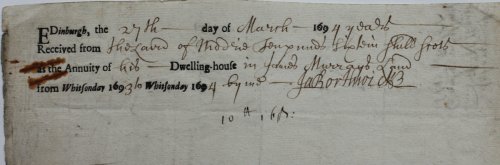 EDinburgh, the 27th day of March 1694 years
Received from the Laird of Niddrie Ten punds sixtein shill Scots
as the Annuity of his Dwelling-house in James Murrays Land
from Whitsonday 1693 to Whitsonday 1694 by me
10 ll 16 s: